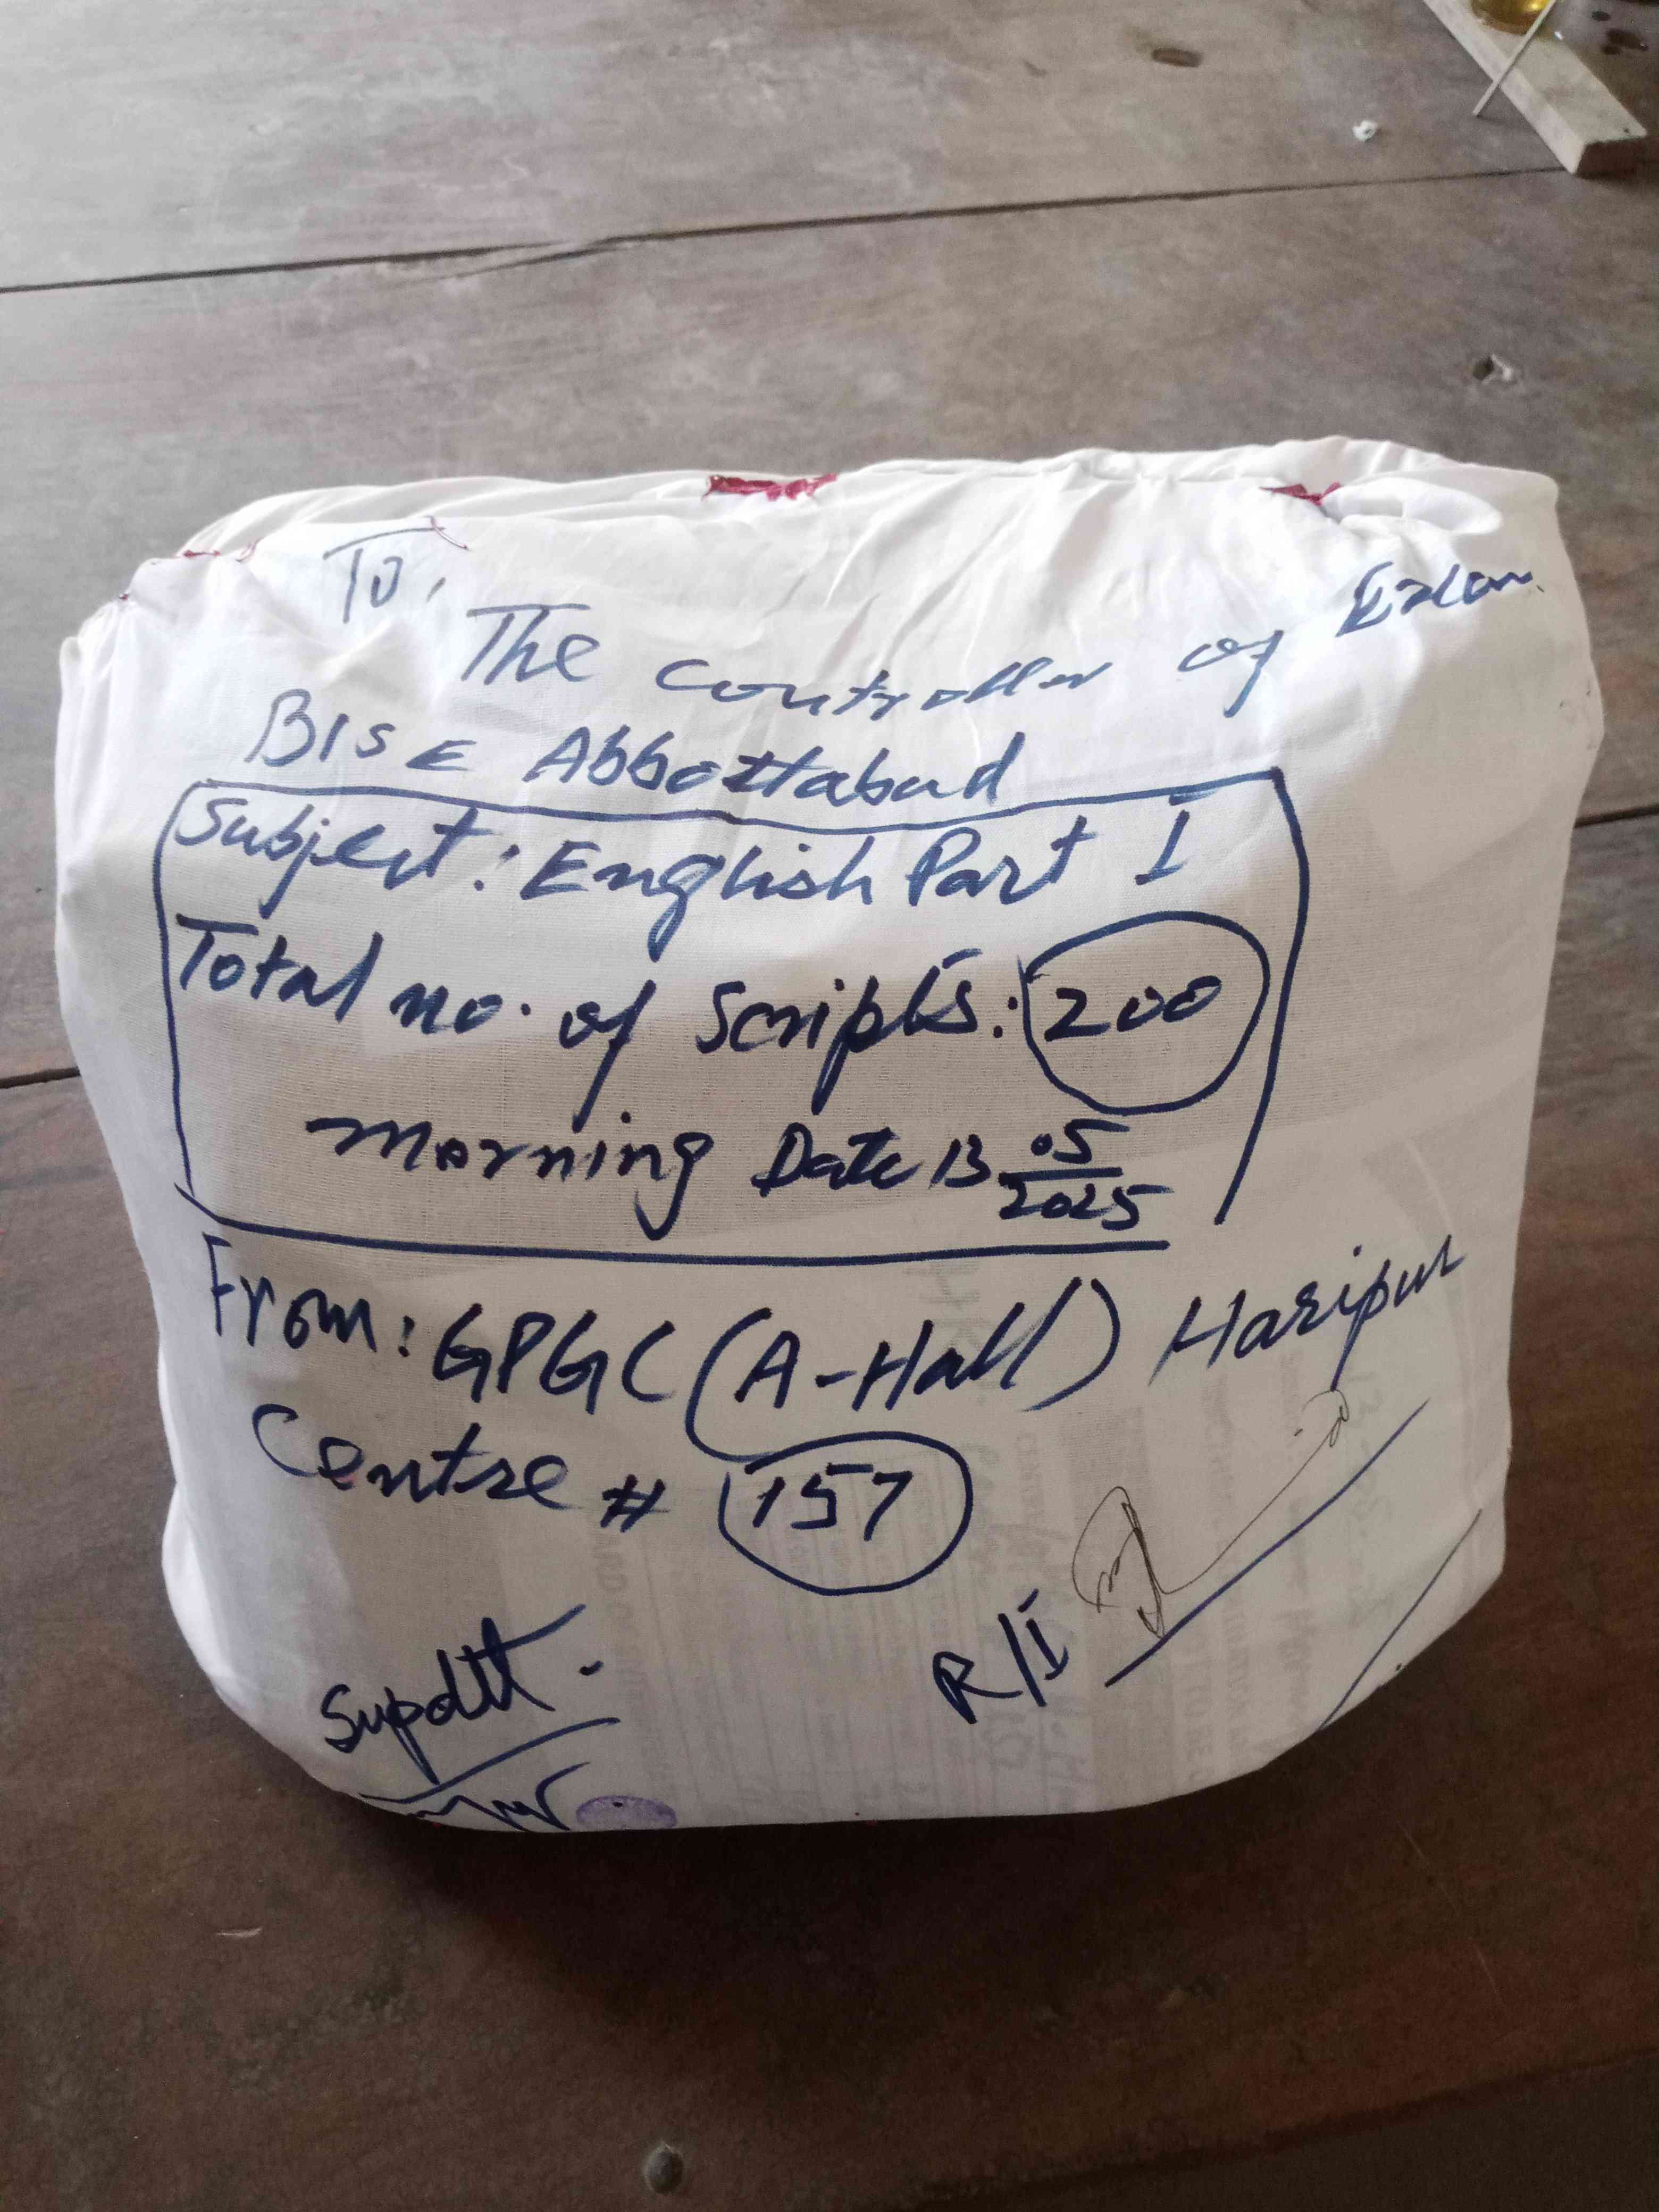 To,
The Controller of Exam.
BISE Abbottabad
Subject: English Part I
Total no. of Scripts: 200
Morning Date 13.05
2025
From: GPGC (A-Hall) Haripur
Centre # 157
R/I
Supdtt.